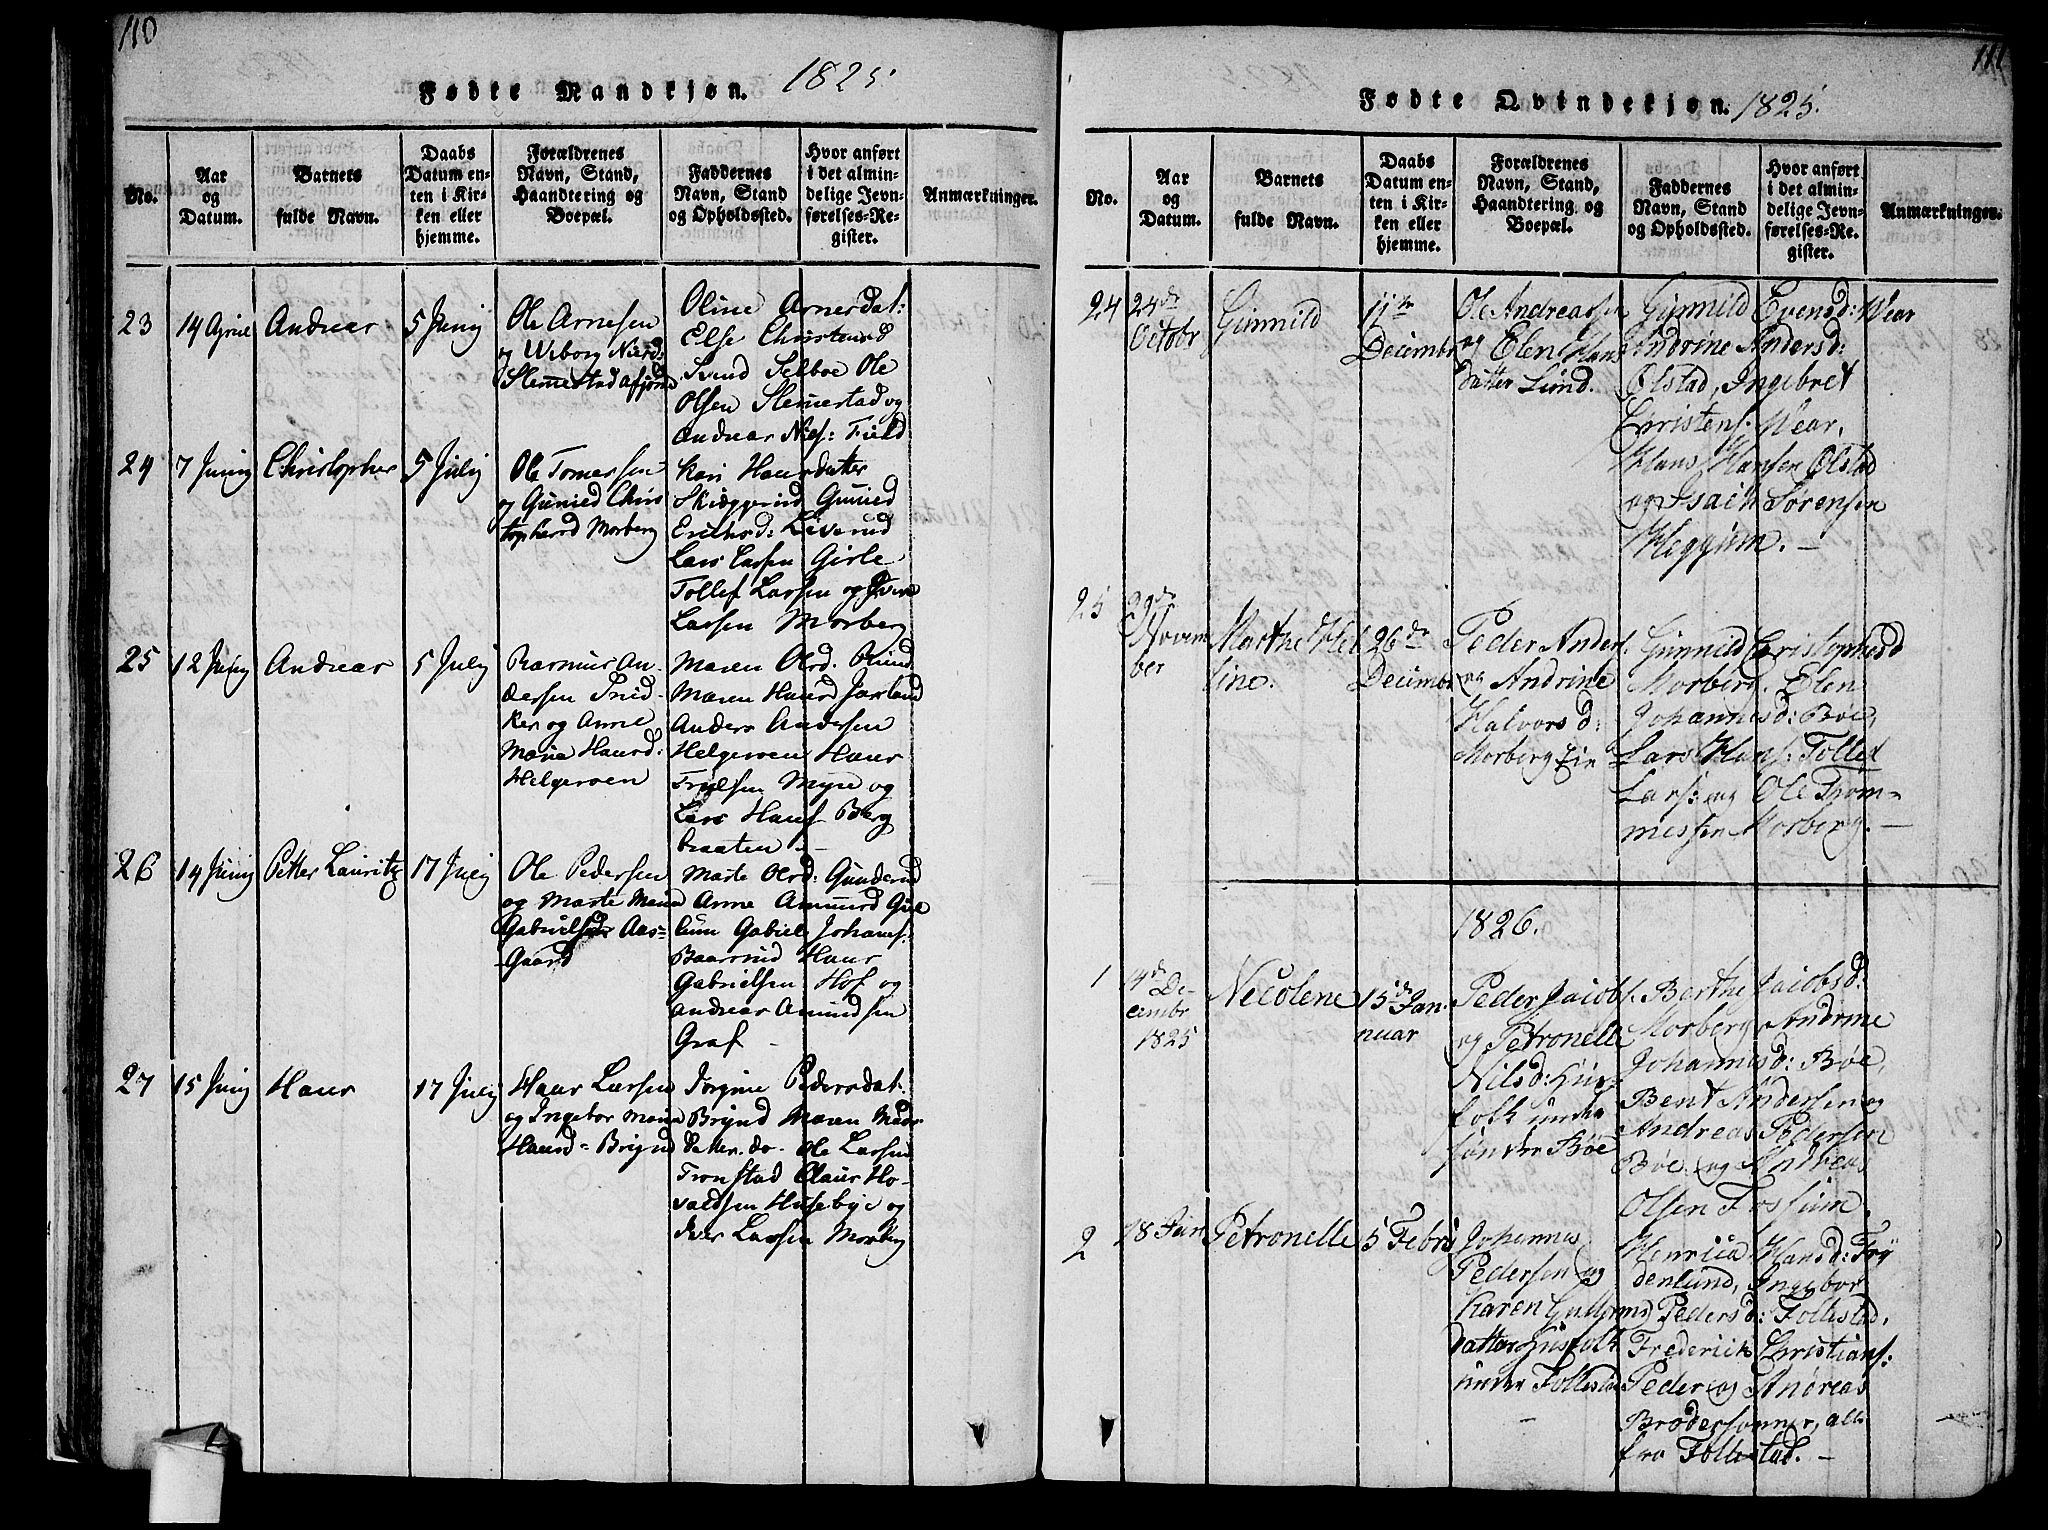 110
Fødte Mandkjøn. 1825.
No.
Aar
og
Datum.
Barnets
fulde Navn.
Daabs
Datum en-
ten i Kir-
ken eller
hjemme.
Forældrenes
Navn, Stand,
Haandtering og
Boepæl.
Faddernes
Navn, Stand
og Opholdssted.
Hvor anført
i det almin-
delige Jevn-
førelses-Re-
gister.
Anmærkninger.
23
14 April
Andreas
5 Juny
Ole Arnesen
og Wiborg
Slemmestad
Oline Arnesdat:
Else Christensd
Selboe Ole
Olsen Slemestad og
Andreas Niels: Field
24
7 Juny
Christopher
5 July
Ole Tomassen
og Guniled Chris
tophersd Morberg
Kari Hansdatter
Guniled
Ericksd: Liverud
Lars Larsen Gisle
Tollef Larsen og Iver
Larsen Morberg
25
12 Juny
Andreas
5 July
Rasmus An-
dersen Snid-
ker og Anne
Maria Hansd:
Helgeroen
Maren Olsd.
Maren Hansd
Anders Andersen
Helgeroen Hans
Myre og
Lars Hans. Berg
braaten -
26
14 Juny
Petter Lauritz
17 July
Ole Pedersen
og Marte Maria
Gabrielsd Aas-
Gaard
Marte Olsd: Gunderud
Anne Amunsd
Gabriel Johans:
Baarsrud Hans
Gabrielsen Hof og
Andreas Amundsen
Graf -
27
15 Juny
Hans
17 July
Hans Larsen
og Ingebor Maria
Hansd - Brynd
Jorgine Pedersdat.
Brynd Maren
do. Ole Larsen
Tronstad Claus Ho-
valdsen Husebye og
Iver Larsen Morberg
111
Fødte Qvindekjøn. 1825.
No.
Aar
og
Datum.
Barnets
fulde Navn.
Daabs
Datum en-
ten i Kir-
ken eller
hjemme.
Forældrenes
Navn, Stand,
Haandtering og
Boepæl.
Faddernes
Navn, Stand
og Opholdssted.
Hvor anført
i det almin-
delige Jevn-
førelses-Re-
gister.
Anmærkninger.
24
24de
Octobr
Gunnild
11te
Decembr
Ole Andreassen
og Elen Hans
datter Lund.
Gunnild Evensd: Wear
Andrine Andersd:
Ølstad, Ingebret
Christens. Wear,
Hans Hansen Ølstad
og Isach Sørensen
Heggum. -
25
29de
Novem
ber
Marthe Hel
sine.
26de
Decembr
Peder Anders.
og Andrine
Halvorsd:
Morberg Eie
Gunnild Cristophersd
Morberg. Elen
Johannesd: Bøe,
Lars Hans: Tollef
Lars: og Ole Tom-
messen Morberg. -
1826.
1
14de De-
cembr
1825
Nicolene
15de Jan-
nuar
Peder Jacobs.
og Petronelle
Nilsd: Hus-
folk under
søndre Bøe
Berthe Jacobsd:
Morberg Andrine
Johannesd: Bøe,
Bent Andersen og
Andreas Pedersen
Bøe og Andreas
Olsen Fossum.
2
18 Jan
Petronelle
5 Febr
Johannes
Pedersen og
Karen Gulbrands
datter Husfolk
under Follestad
-
Henrica Hansd: Fry
denlund, Ingebor
Pedersd: Follestad,
Frederick Christians:
Peder og Andreas
Brødersønner, alle
fra Follestad. -